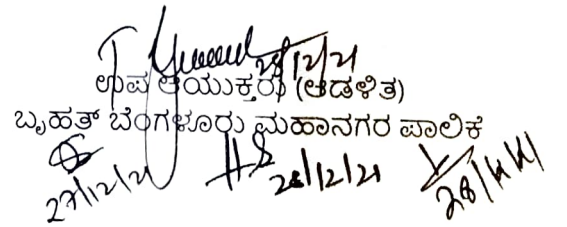 28/12/21
ಉಪ ಆಯುಕ್ತರು (ಆಡಳಿತ)
ಬೃಹತ್ ಬೆಂಗಳೂರು ಮಹಾನಗರ ಪಾಲಿಕೆ
27/12/21 28/12/21